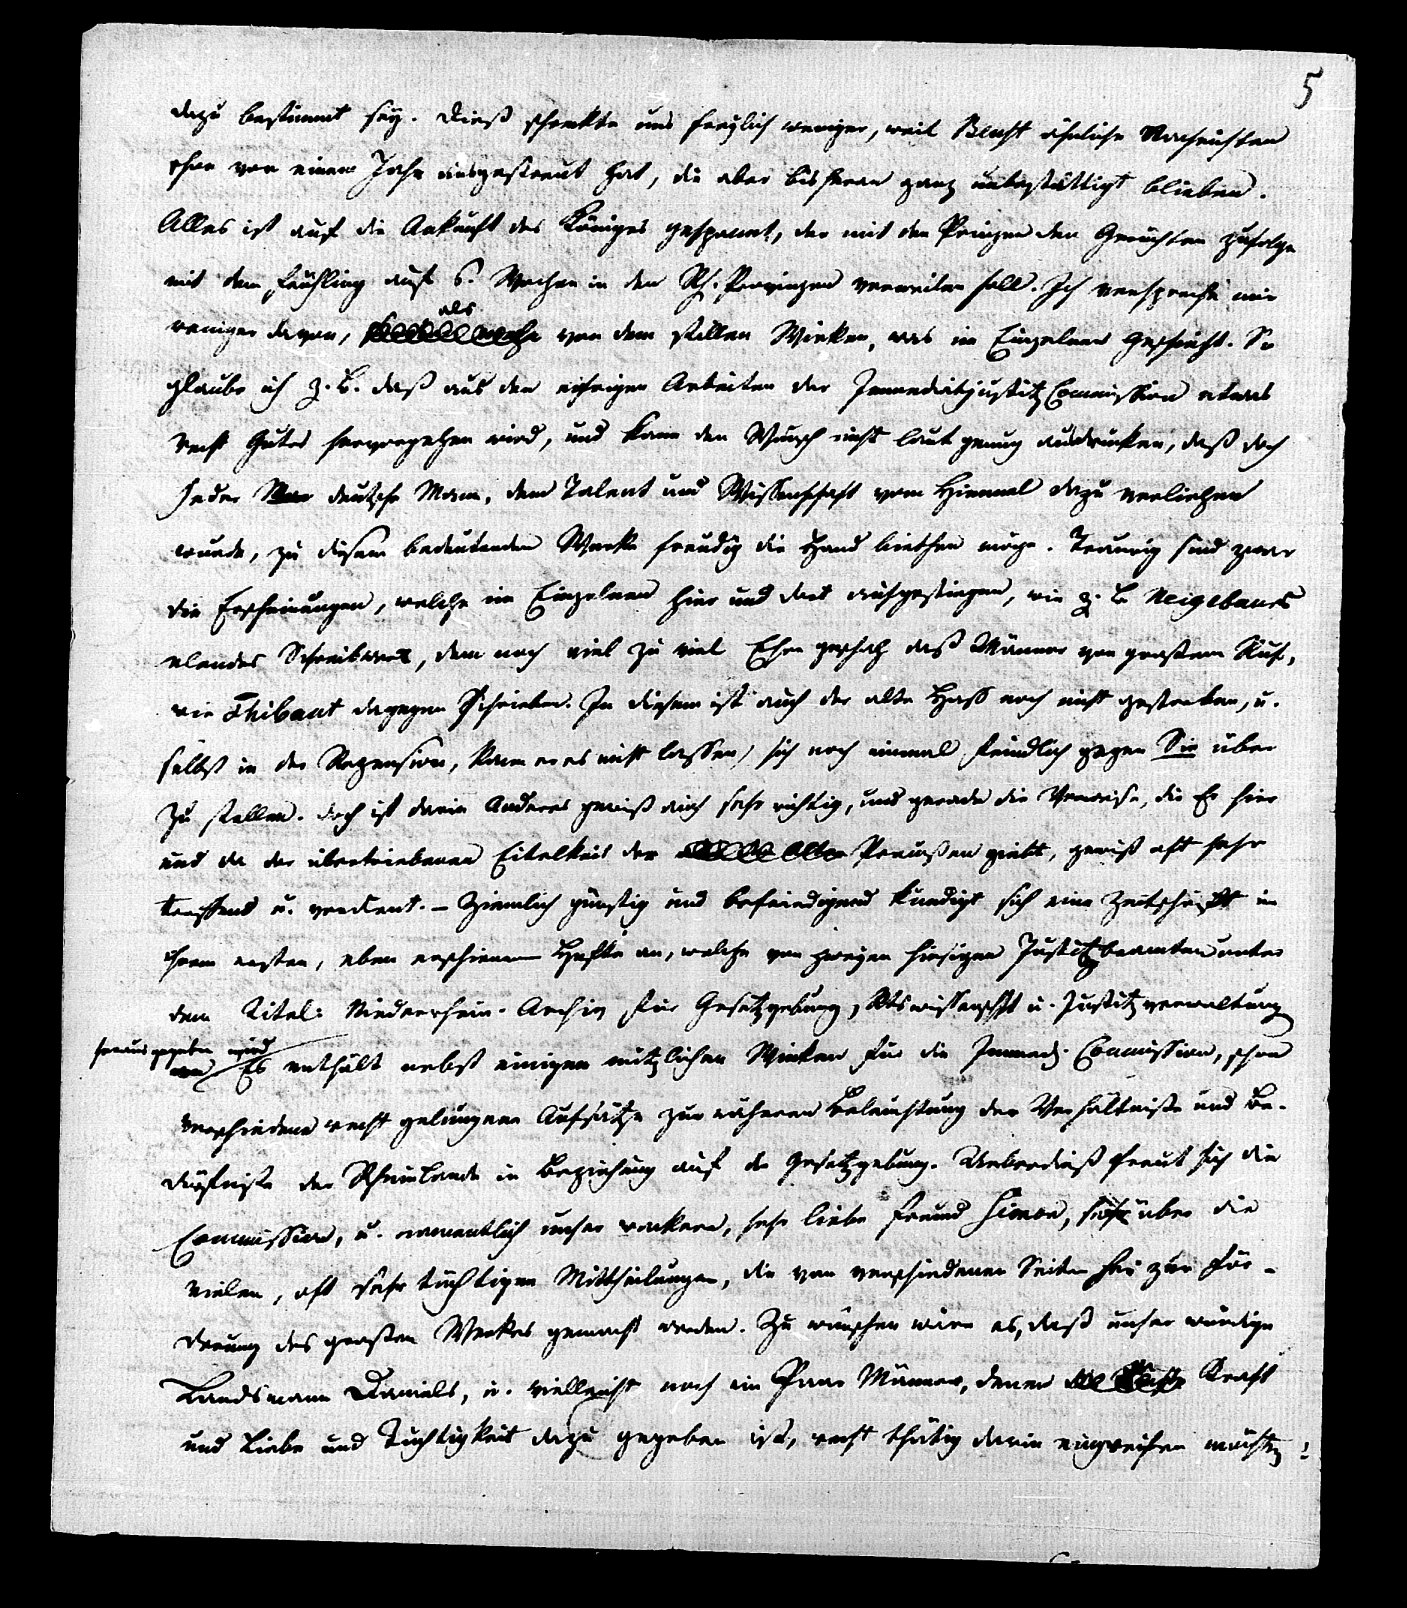 5
dazu bestimmt sey. Dieß schreckte uns freylich weniger, weil Brust ähnliche Nachrichten
schon vor einem Jahr ausgestreut hat, die aber bisheran ganz unbestättigt blieben.
Alles ist auf die Ankunft des Königes gespannt, der mit den Prinzen den Gerüchten zufolge
mit dem Frühling auf 6. Wochen in den Rh. Provinzen verweilen soll. Ich verspreche mir
weniger davon, als von dem stillen Wirken, was im Einzelnen geschieht. So
glaube ich z. B. daß aus den eifrigen Arbeiten der Immediatjustitz Commission etwas
recht Gutes hervorgehen wird, und kann den Wunsch nicht laut genug ausdrücken, daß doch
jeder deutsche Mann, dem Talent und Wissenschaft vom Himmel dazu verliehen
wurde, zu diesem bedeutenden Werke freudig die Hand biethen möge. Traurig sind zwar
die Erscheinungen, welche im Einzelnen hier und dort aufgestiegen, wie z. B. Neigebaurs
elendes Schreibwerk, dem noch viel zu viel Ehre geschah daß Männer von großem Ruf,
wie Thibaut dagegen schrieben. In diesem ist auch der alte Haß noch nicht gestorben, u.
selbst in der Rezension, kann er es nicht lassen, sich noch einmal feindlich gegen Sie über
zu stellen. Doch ist darin Anderes gewiß auch sehr richtig, und gerade die Verweise, die Er hier
und da der übertriebenen Eitelkeit der Preußen giebt, gewiß oft sehr
treffend u. verdient. – Ziemlich günstig und befriedigend kündigt sich eine Zeitschrift in
ihrem ersten, eben erschienenen Hefte an, welche von zweyen hiesigen Justitzbeamten unter
dem Titel: Niederrhein. Archiv für Gesetzgebung, Rtswissenschft u. Justitzverwaltung
herausgegeben wird Es enthält nebst einigen nützlichen Winken für die Immed. Commission, schon
verschiedene recht gelungene Aufsätze zur näheren Beleuchtung der Verhältniße und Be-
dürfniße der Rheinlande in Beziehung auf die Gesetzgebung. Ueberdieß freut sich die
Commission, u. namentlich unser wackerer, sehr lieber Freund Simon, sehr über die
vielen, oft sehr tüchtigen Mittheilungen, die von verschiedenen Seiten her zur För-
derung des großen Werkes gemacht werden. Zu wünschen wäre es, daß unser würdige
Landsmann Daniels, u. vielleicht noch ein Paar Männer, denen Kraft
und Liebe und Tüchtigkeit dazu gegeben ist, recht thätig darin eingreifen möchten!